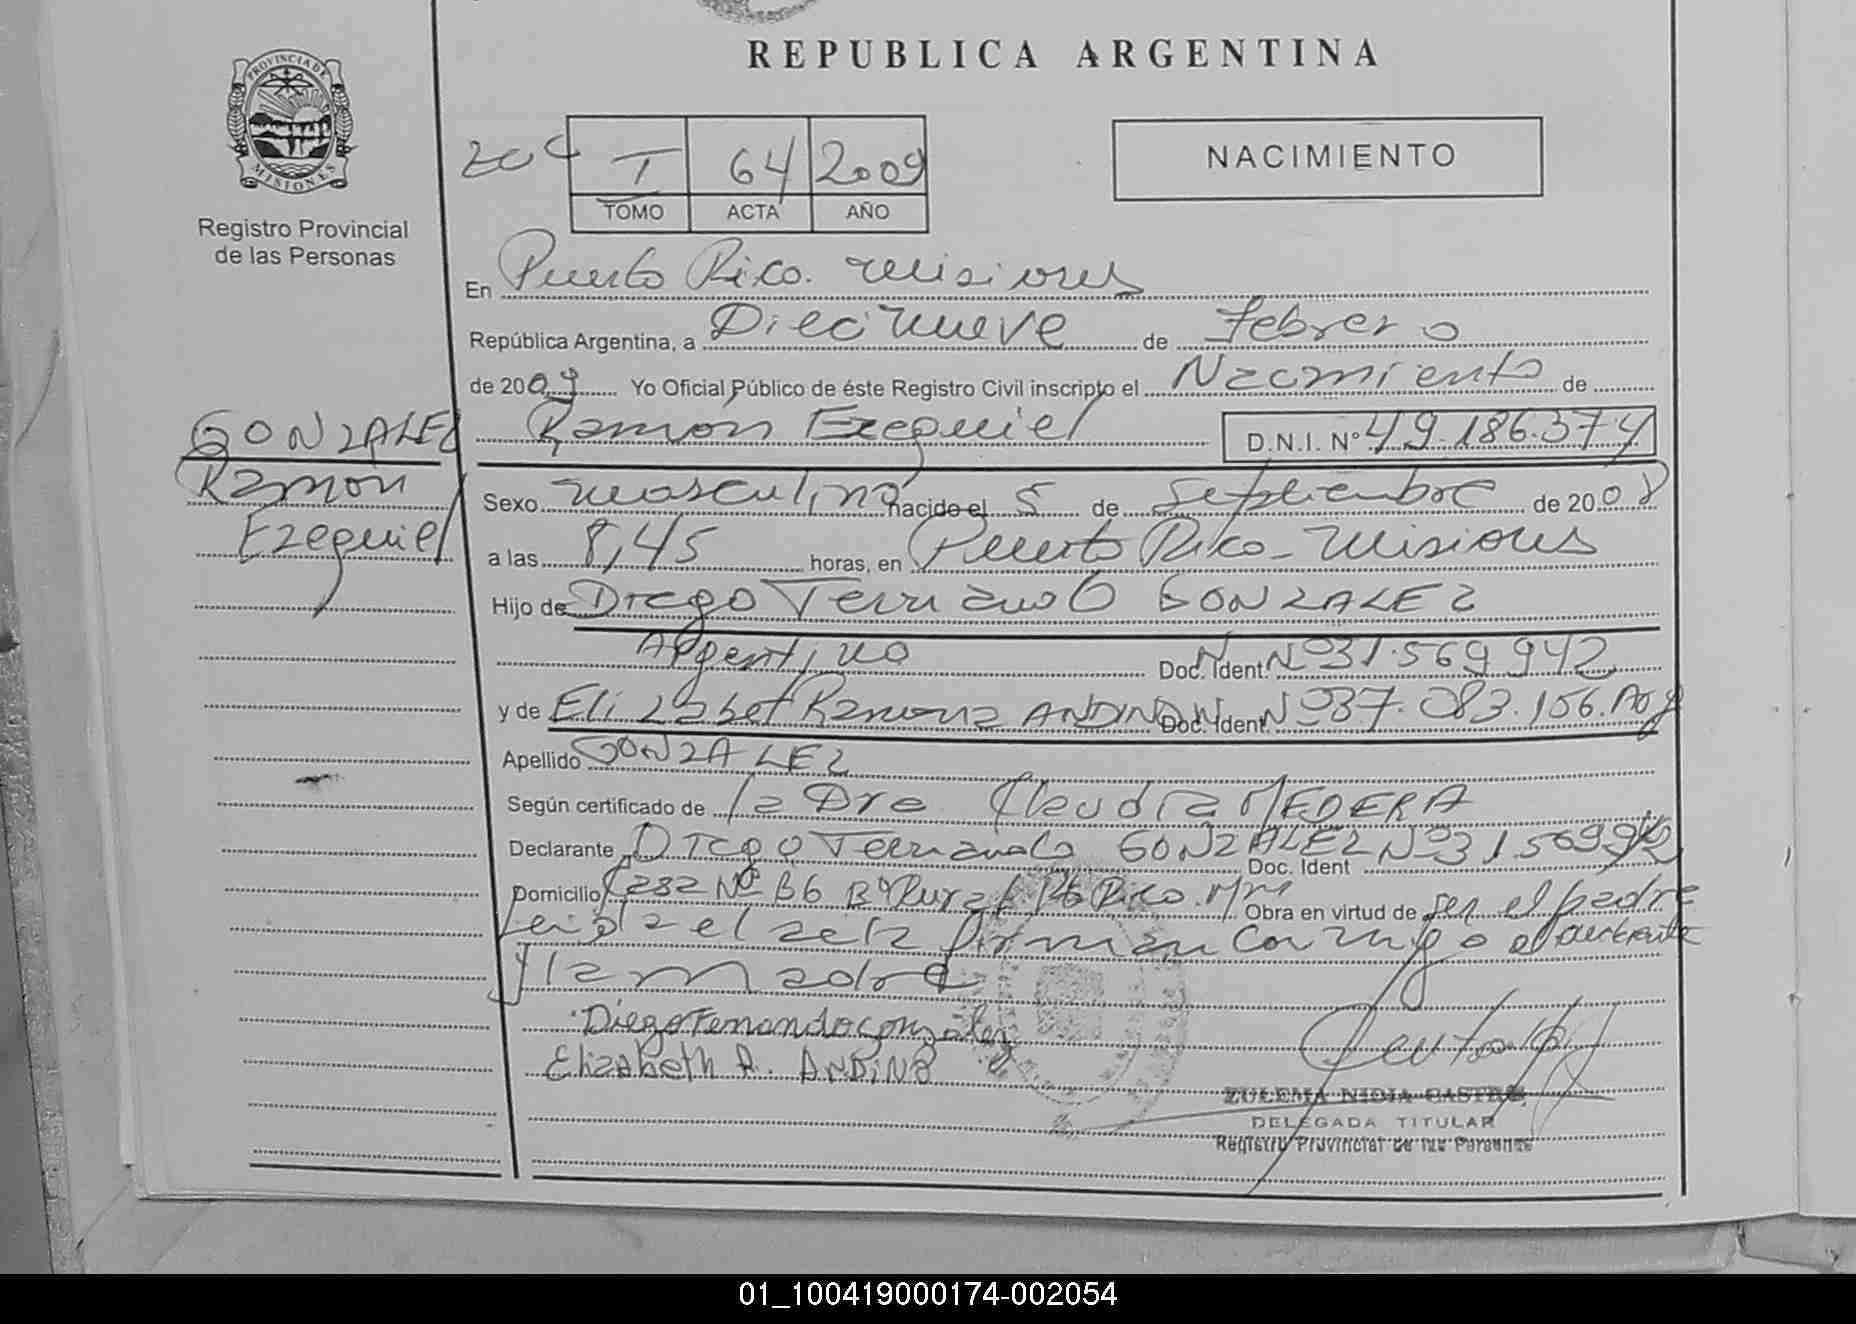 REPUBLICA ARGENTINA
PROVINCIA DE MISIONES
Registro Provincial
de las Personas
204 T 64 2009
TOMO ACTA AÑO
NACIMIENTO
En Puerto Rico. Misiones
República Argentina, a Diecinueve de Febrero
de 2009 Yo Oficial Público de éste Registro Civil inscripto el Nacimiento de
GONZALEZ
Ramón Ezequiel D.N.I. Nº 49.186.374
Ramón
Ezequiel
Sexo masculino nacido el 5 de Septiembre de 2008
a las 8,45 horas, en Puerto Rico - Misiones
Hijo de Diego Fernando GONZALEZ
Argentino Doc. Ident. Nº 31.569.942
y de Elizabet Ramona ANDINO Doc. Ident. Nº 37.083.156. Arg
Apellido GONZALEZ
Según certificado de la Dra Claudia MEDERA
Declarante Diego Fernando GONZALEZ Doc. Ident Nº 31.569.942
Domicilio Casa Nº 66 Bº Rural Pto Rico. Mnes Obra en virtud de ser el padre
Leida el acta firman conmigo el declarante
y la madre
Diego Fernando gonzalez
Elizabeth R. ANDINO
ZULEMA NIDIA CASTRO
DELEGADA TITULAR
Registro Provincial de las Personas
01_100419000174-002054